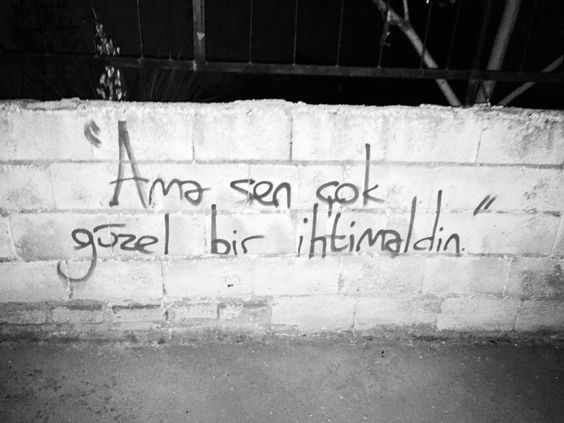 "Ama sen çok
güzel bir ihtimaldin."